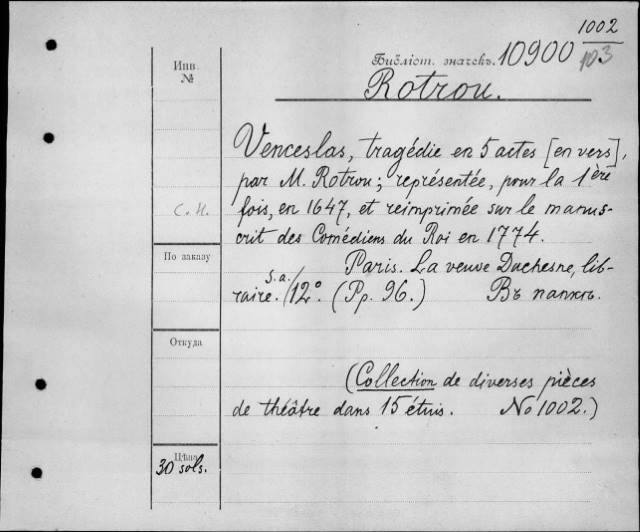 1002
Инв. №
Библіот. значекъ. 10900 103
Rotrou.
Venceslas, tragédie en 5 actes [en vers],
par M. Rotrou; représentée, pour la 1ère
C. H.
fois, en 1647, et reimprimée sur le manus-
crit des Comédiens du Roi en 1774.
По заказу
Paris. La veuve Duchesne, lib-
raire. s.a./12º. (Pp. 96.) Въ папкѣ.
Откуда
(Collection de diverses pièces
de théâtre dans 15 étuis. No 1002.)
Цѣна
30 sols.